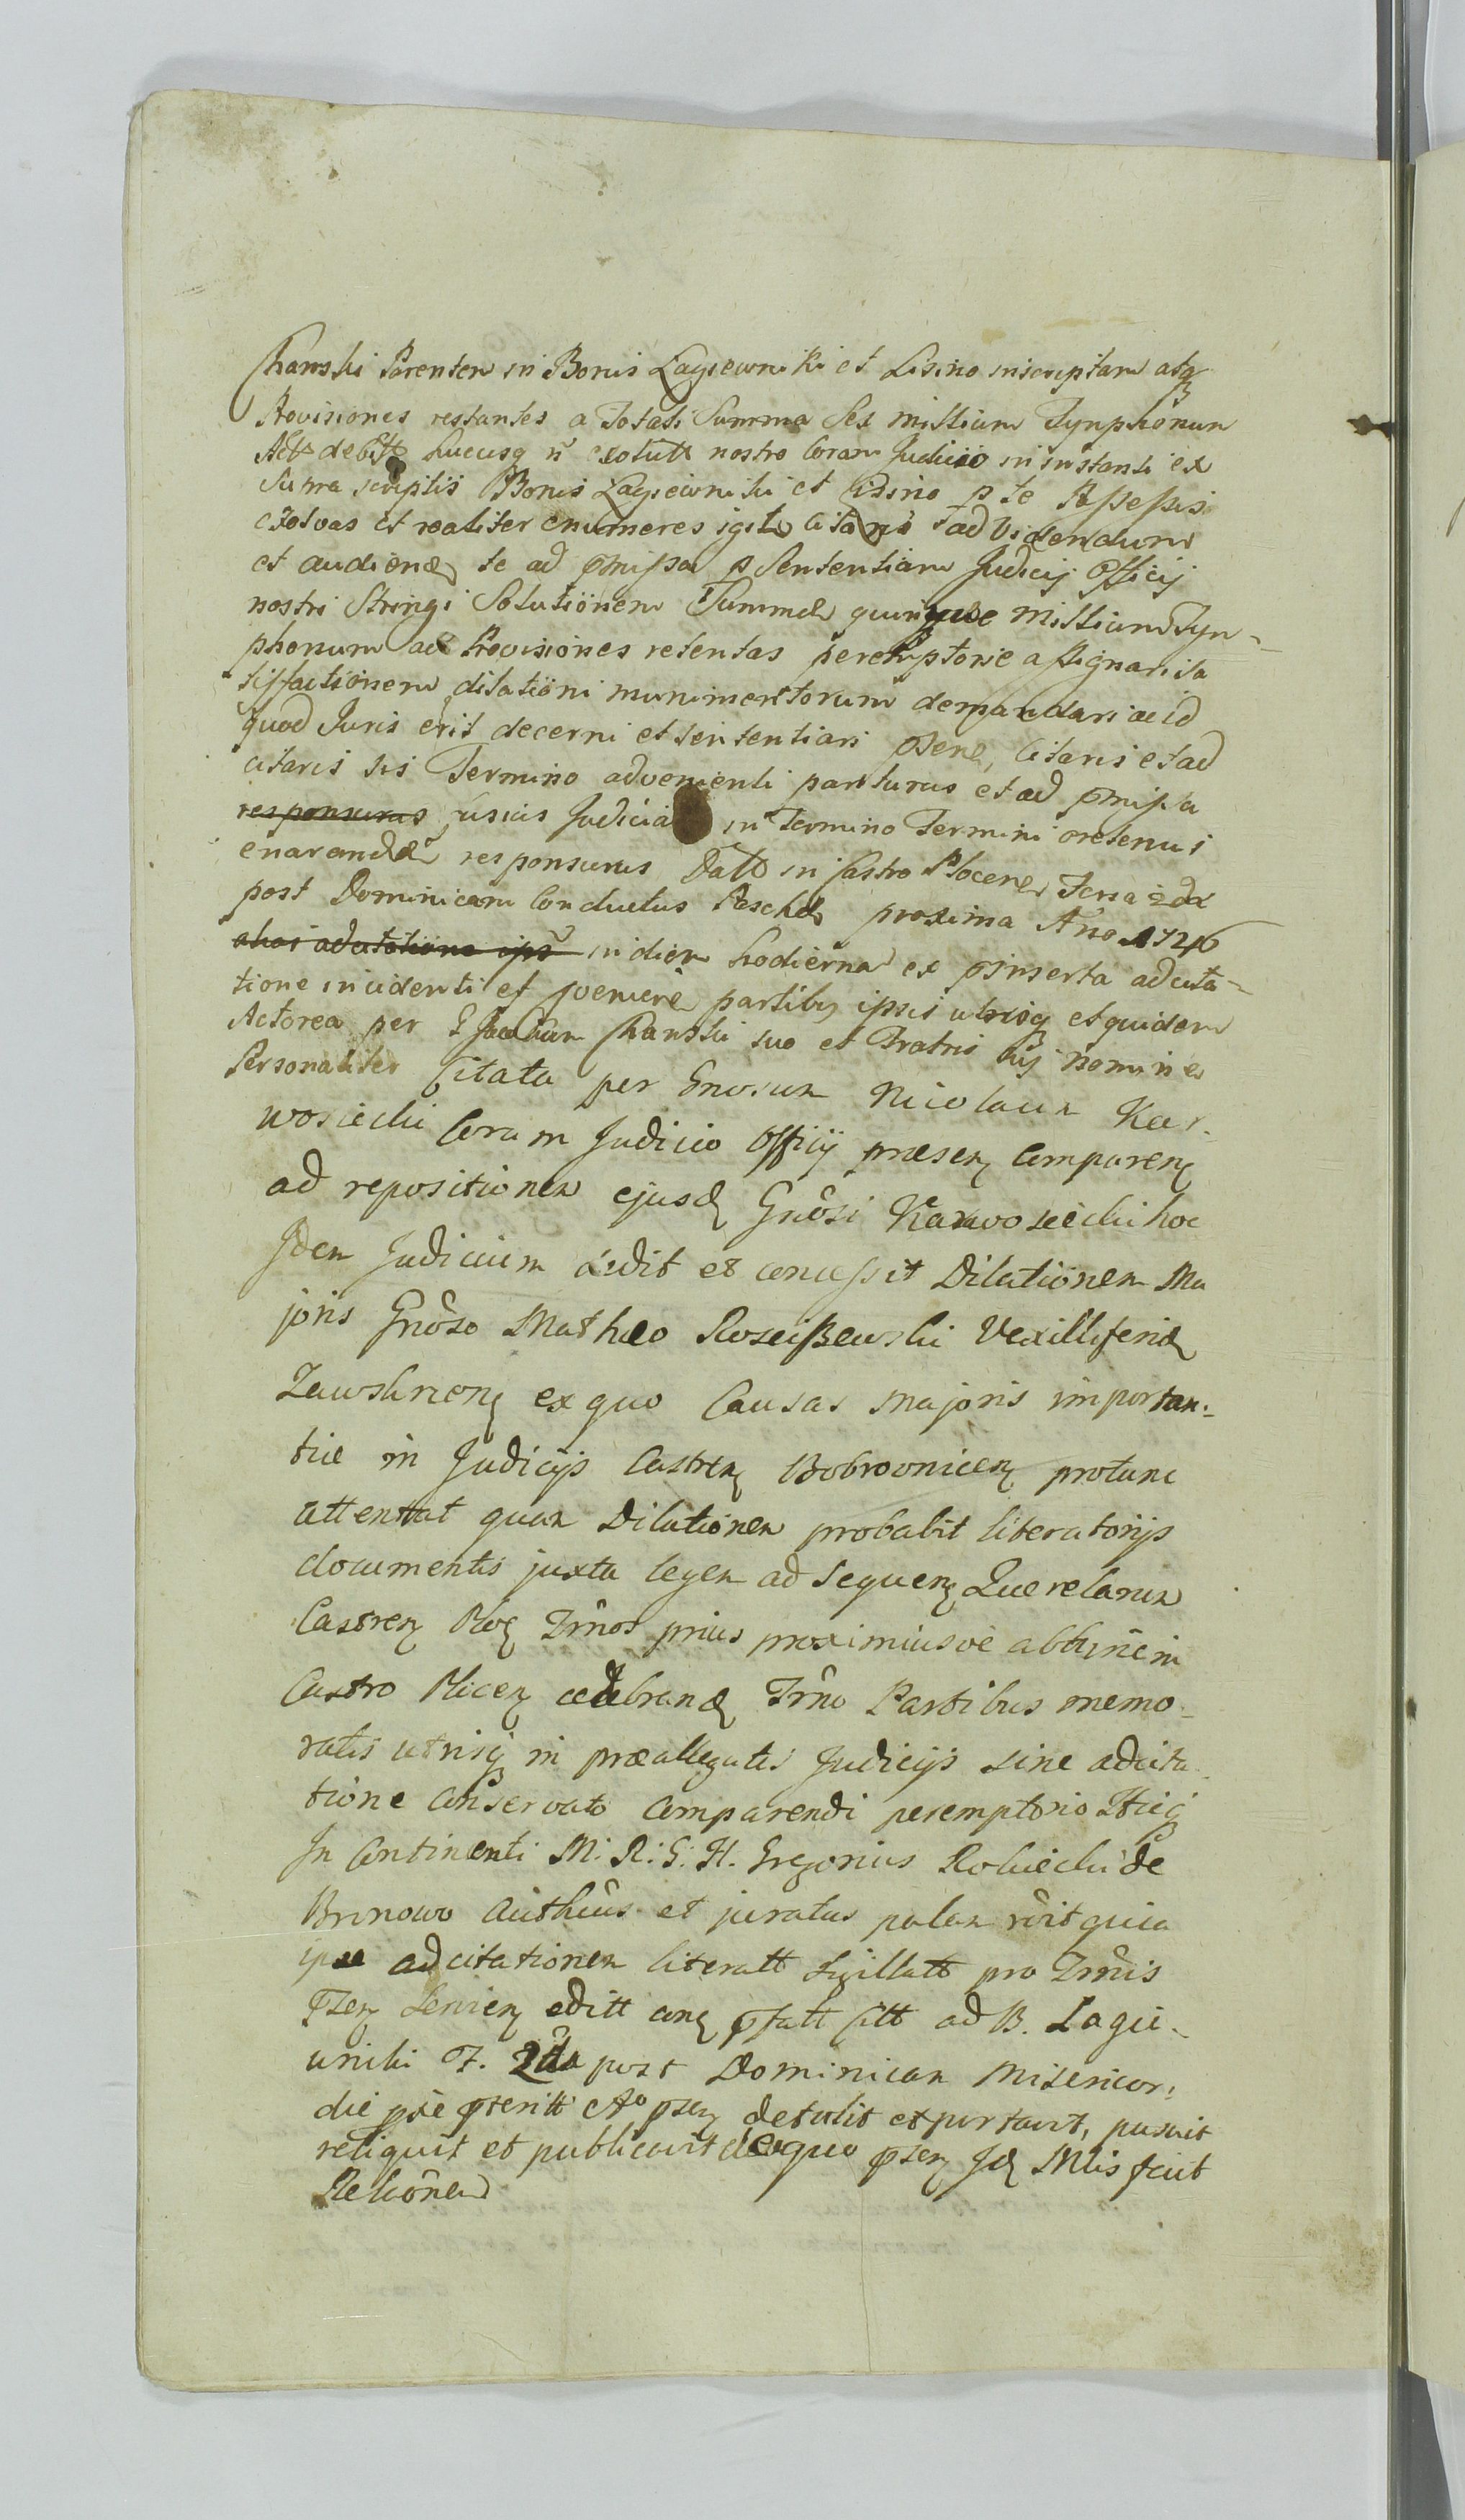 Chanski Parentem in Bonis Lagiewniki et Lisino inscriptam atq
Provisiones restantes a Totali Summa Sex millium Tynphonum
Act debitt hucusq n exolutt nostro Coram Judicio in instanti ex
Supra scriptis Bonis Lagiewniki et Lisino p te Possessis
exolvas et realiter enumeres igitr Citaris ad Videndum
et audiend te ad pmissa p Sententiam Judicij Officij
nostri Stringi Solutionem Summæ quinque millium Tyn-
phonum ac Provisiones retentas peremptorie assignari sa
tisfactionem dilationi munimentorum demandari ac id
quod Juris erit decerni et sententiari psens, Citaris et ad
citaris sis Termino advenienti pariturus et ad pmissa
responsurus fusius Judicia in Termino Termini oretenus
enarandæ responsurus Datt in Castro Plocen Feria 2da
post Dominicam Conductus Paschæ proxima Ano 1746
in diem hodierna ex pinserta adcita-
tione incidenti et pveniene partibus ipsis utrisq et quidem
Actorea per G Joachim Chanski suo et Fratris sui nomine
Personaliter Citata per Gnosum Nicolaum Kar-
wosiecki Coram Judicio Officij præsen Comparen
ad repositionem ejusd Gnosi Karwosiecki hoc
Idem Judicium dedit et concessit Dilationem Ma
joris Gnoso Mathæo Rosciszewski Vexilliferid
Zawskrzen ex quo Causas majoris importan-
tiæ in Judicijs Castren Bobrownicen protunc
attentat quam Dilationem probabit literatorijs
documentis juxta legem ad sequen Querelarum
Castren Ploc Trnos prius proximiusve abhinc in
Castro Plicen celebrand Trno Partibus memo-
ratis utrisq in præallegatis Judicijs sine adcita-
tione conservato Comparendi peremptorio
In Continenti M. R. G. H. Gregorius Rokicki de
Brunowo Authcus et juratus palam rcit quia
ipse adcitationem literatt sigillatt pro Trnis
psen Servien editt con pfatt Citt ad B. Lagie-
wniki F. 2da post Dominicam Misericor-
die pxe pteritt Ao psen detulit et portavit, posuit
reliquit et publicavit de quo psen Id Mlis fecit
Relõnem